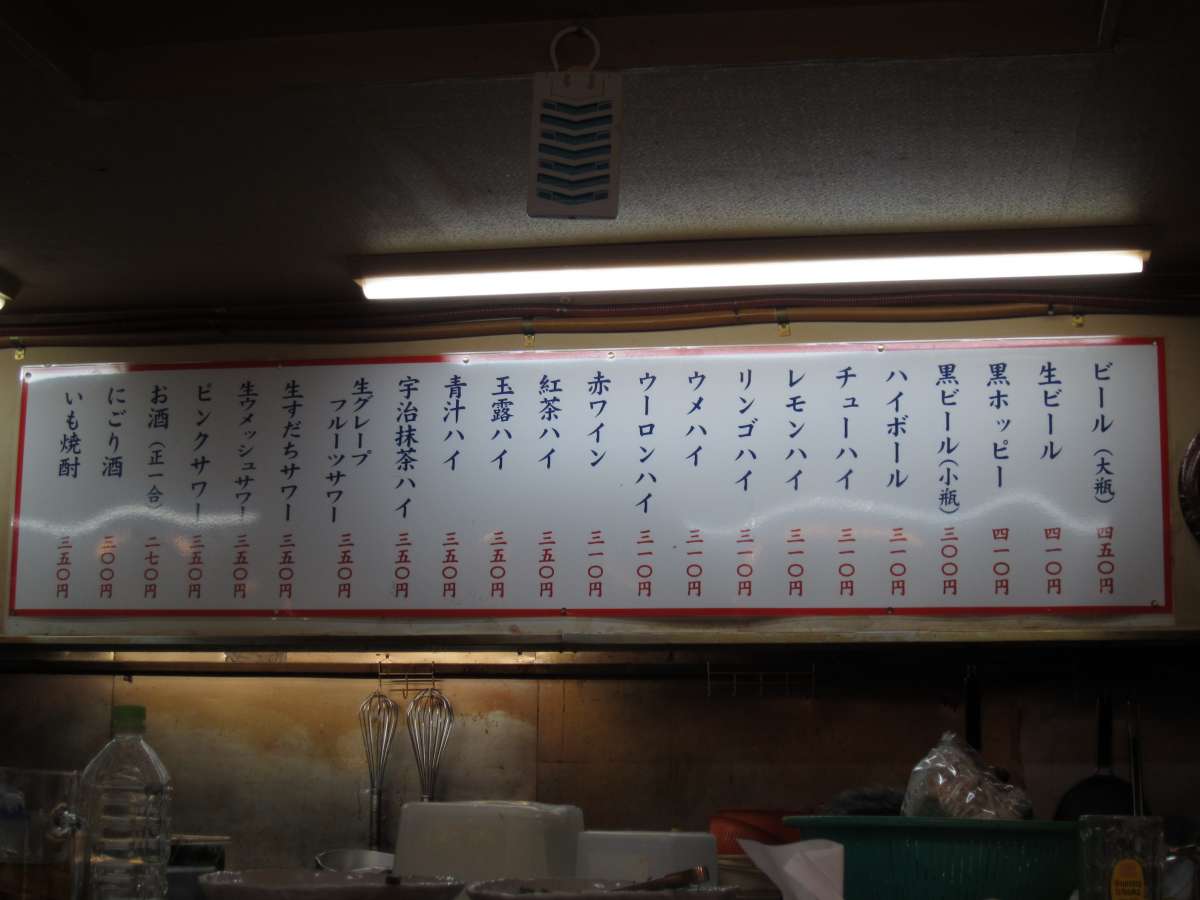 ビール(大瓶) 四五〇円
生ビール 四一〇円
黒ホッピー 四一〇円
黒ビール(小瓶) 三〇〇円
ハイボール 三一〇円
チューハイ 三一〇円
レモンハイ 三一〇円
リンゴハイ 三一〇円
ウメハイ 三一〇円
ウーロンハイ 三一〇円
赤ワイン 三一〇円
紅茶ハイ 三五〇円
玉露ハイ 三五〇円
青汁ハイ 三五〇円
宇治抹茶ハイ 三五〇円
生グレープ
フルーツサワー 三五〇円
生すだちサワー 三五〇円
生ウメッシュサワー 三五〇円
ピンクサワー 三五〇円
お酒(正一合) 二七〇円
にごり酒 三〇〇円
いも焼酎 三五〇円